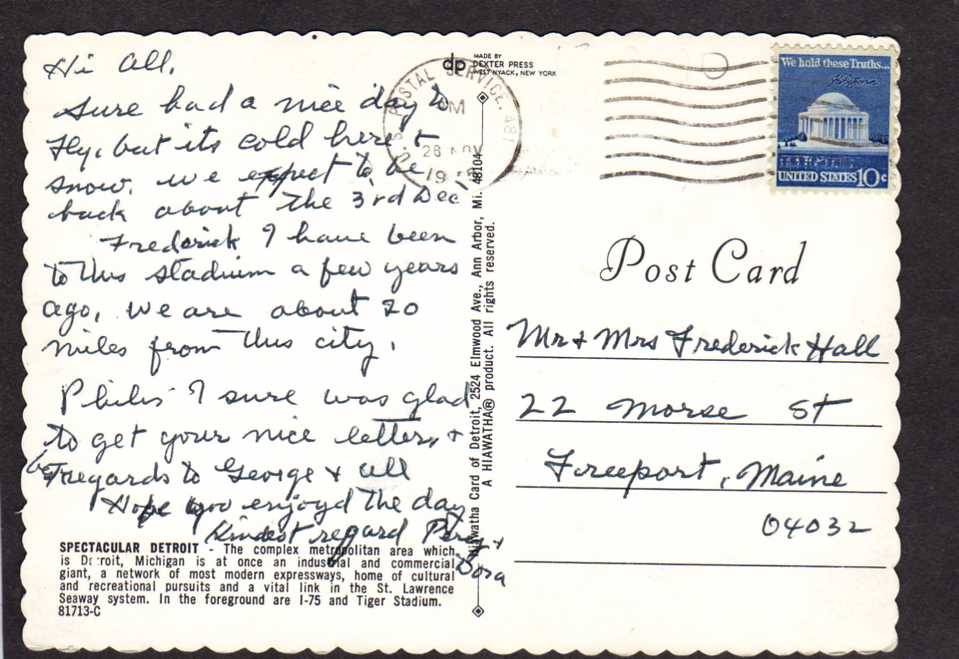 Hi All,
Sure had a nice day to
fly, but its cold here &
snow. We expect to be
back about the 3rd Dec
Frederick I have been
to this stadium a few years
ago, we are about 20
miles from this city.
Philis I sure was glad
to get your nice letter, &
regards to George & all
Hope you enjoyd the day
Kindest regard
Dora
SPECTACULAR DETROIT - The complex metropolitan area which
is Detroit, Michigan is at once an industrial and commercial
giant, a network of most modern expressways, home of cultural
and recreational pursuits and a vital link in the St. Lawrence
Seaway system. In the foreground are I-75 and Tiger Stadium.
81713-C
dp
MADE BY
DEXTER PRESS
WEST NYACK, NEW YORK
Hiawatha Card of Detroit, 2524 Elmwood Ave., Ann Arbor, Mi. 48104
A HIAWATHA® product. All rights reserved.
POSTAL SERVICE, 481
PM
28 NOV
19
We hold these Truths...
UNITED STATES 10c
Post Card
Mr & Mrs Frederick Hall
22 Morse St
Freeport, Maine
04032